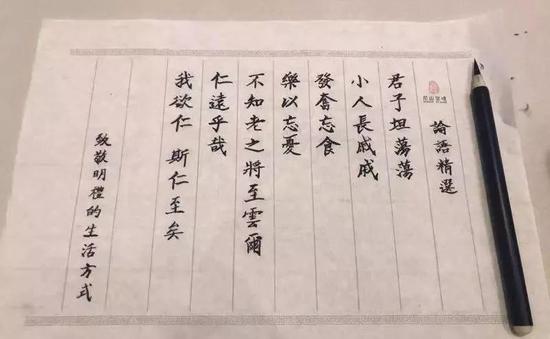 論語精選
君子坦蕩蕩
小人長戚戚
發奮忘食
樂以忘憂
不知老之將至雲爾
仁遠乎哉
我欲仁 斯仁至矣
致敬明禮的生活方式